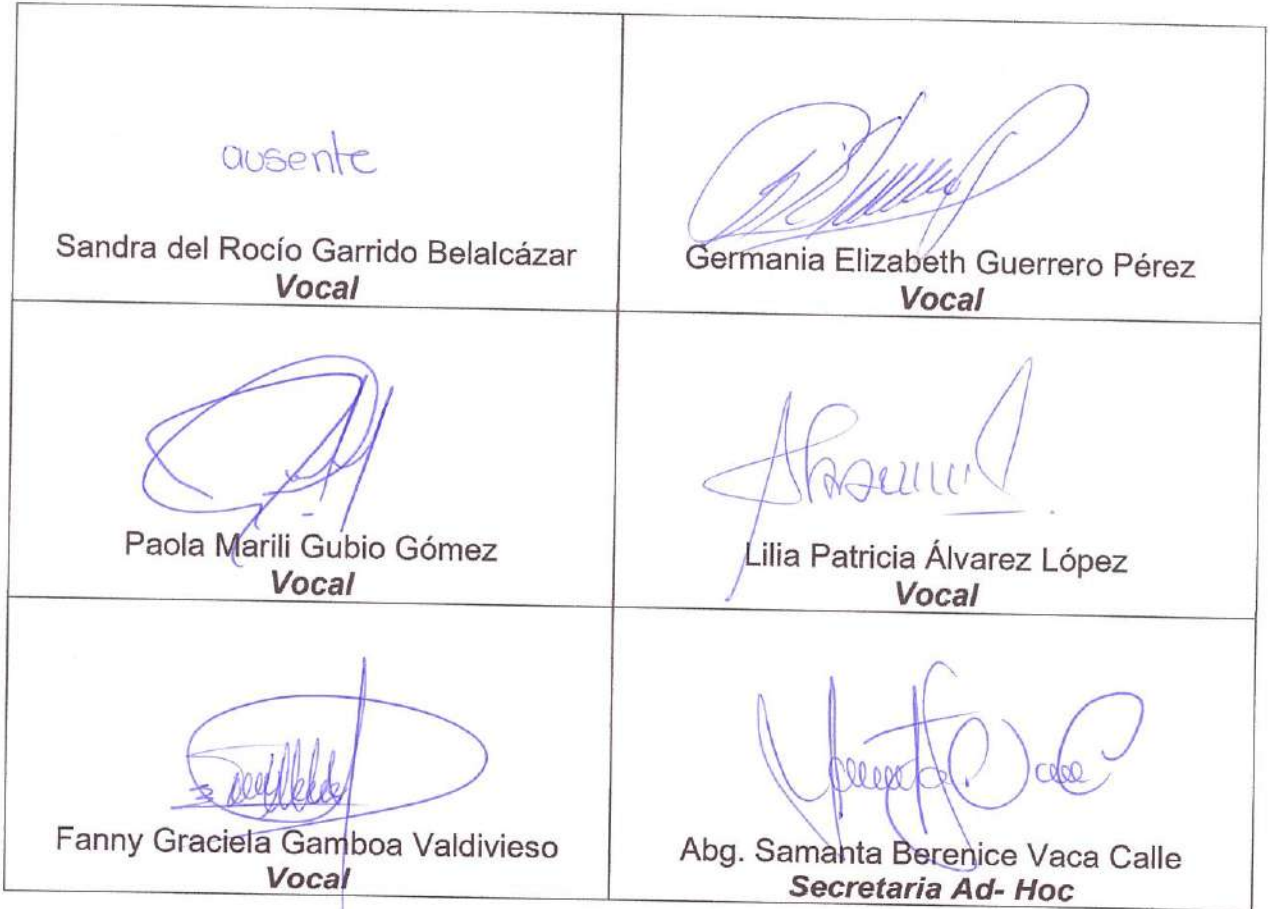 ausente
Sandra del Rocío Garrido Belalcázar
Vocal
Germania Elizabeth Guerrero Pérez
Vocal
Paola Marili Gubio Gómez
Vocal
Lilia Patricia Álvarez López
Vocal
Fanny Graciela Gamboa Valdivieso
Vocal
Abg. Samanta Berenice Vaca Calle
Secretaria Ad- Hoc